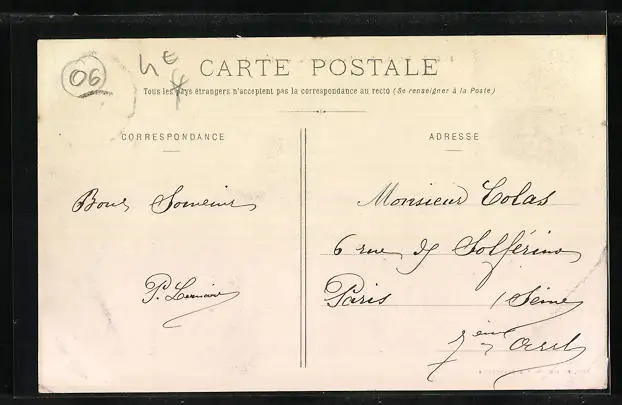 06
CARTE POSTALE
Tous les pays étrangers n'acceptent pas la correspondance au recto (Se renseigner à la Poste)
CORRESPONDANCE
ADRESSE
Bons Souvenirs
Monsieur Colas
6 rue de Solférino
Paris (Seine)
7ème Arrt
P.